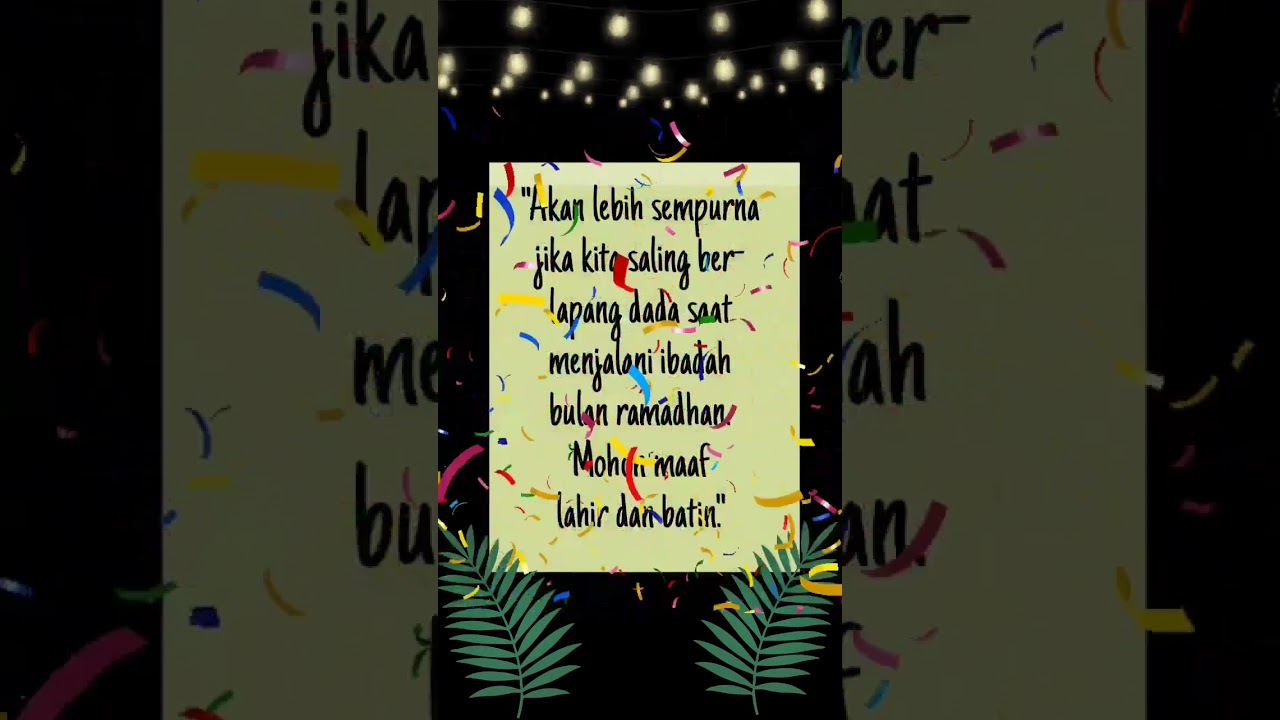 "Akan lebih sempurna
jika kita saling ber-
lapang dada saat
menjalani ibadah
bulan ramadhan.
Mohon maaf
lahir dan batin."